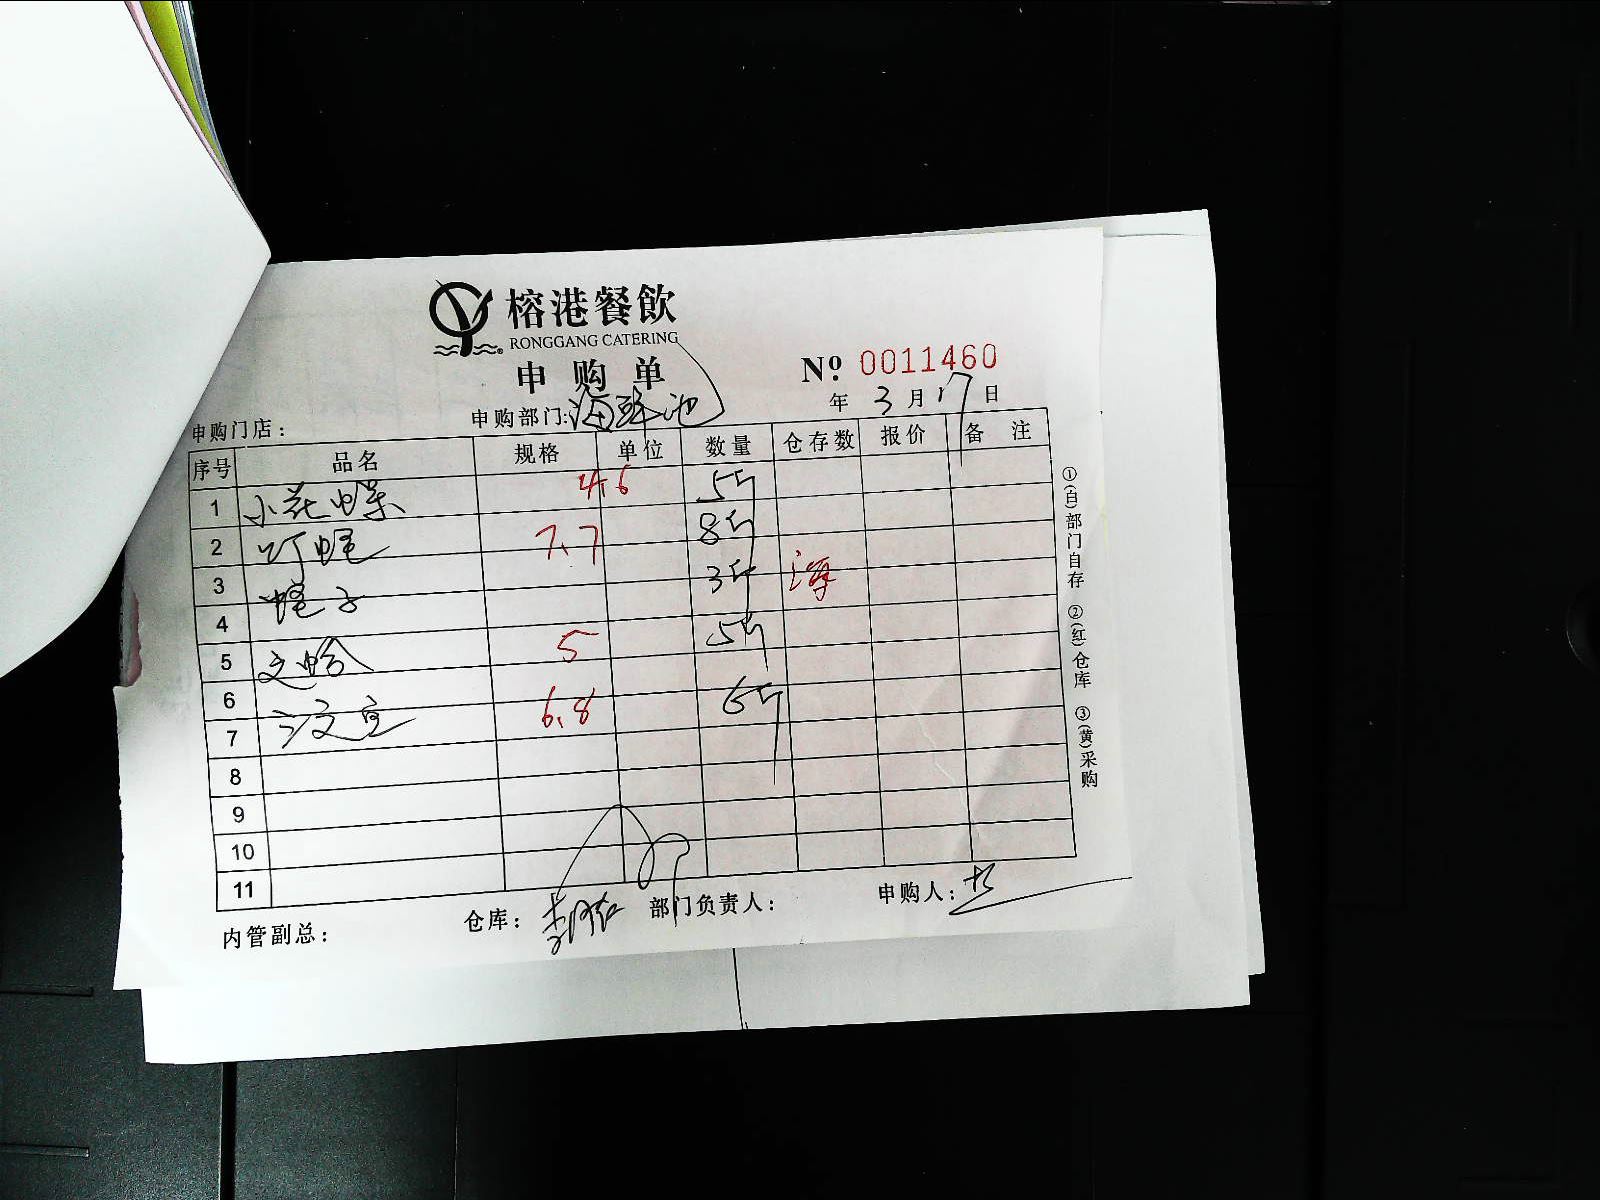 榕港餐飲
RONGGANG CATERING
申购单
№ 0011460
年 3 月 17 日
申购门店： 申购部门: 海鲜池
序号 品名 规格 单位 数量 仓存数 报价 备注
1 小花螺 4.6 5斤
2 蛏 7.7 8斤
3 蛏子 3斤
4
5 文哈 5 5斤
6 6.8 6斤
7
8
9
10
11
内管副总： 仓库： 部门负责人： 申购人：
①(白)部门自存 ②(红)仓库 ③(黄)采购